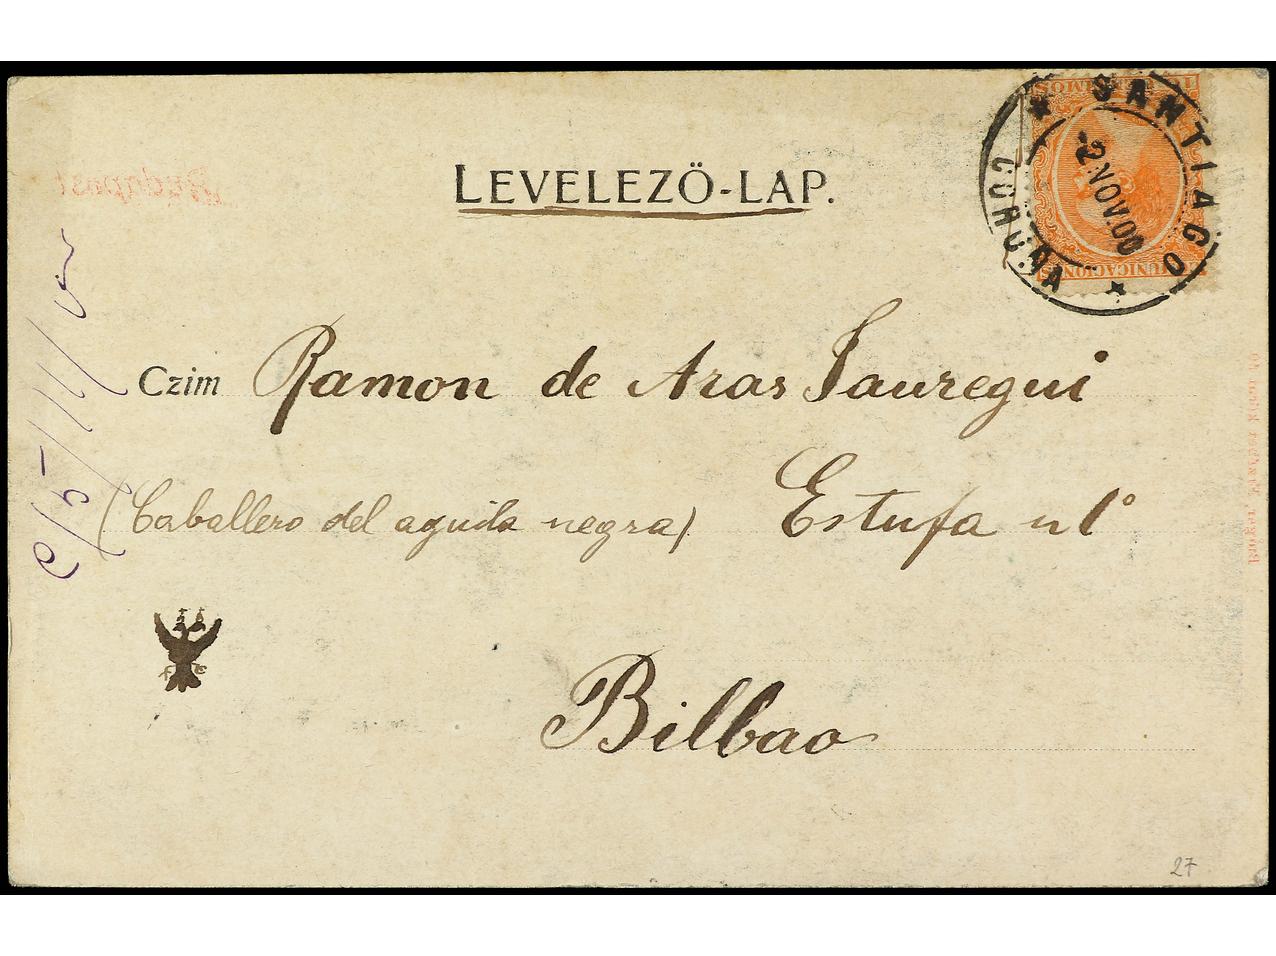 LEVELEZŐ-LAP.
SANTIAGO
CORUÑA
2 NOV. 00
Budapest
Czim Ramon de Aras Jauregui
(Caballero del aguila negra) Estufa nº 1º
Bilbao
27